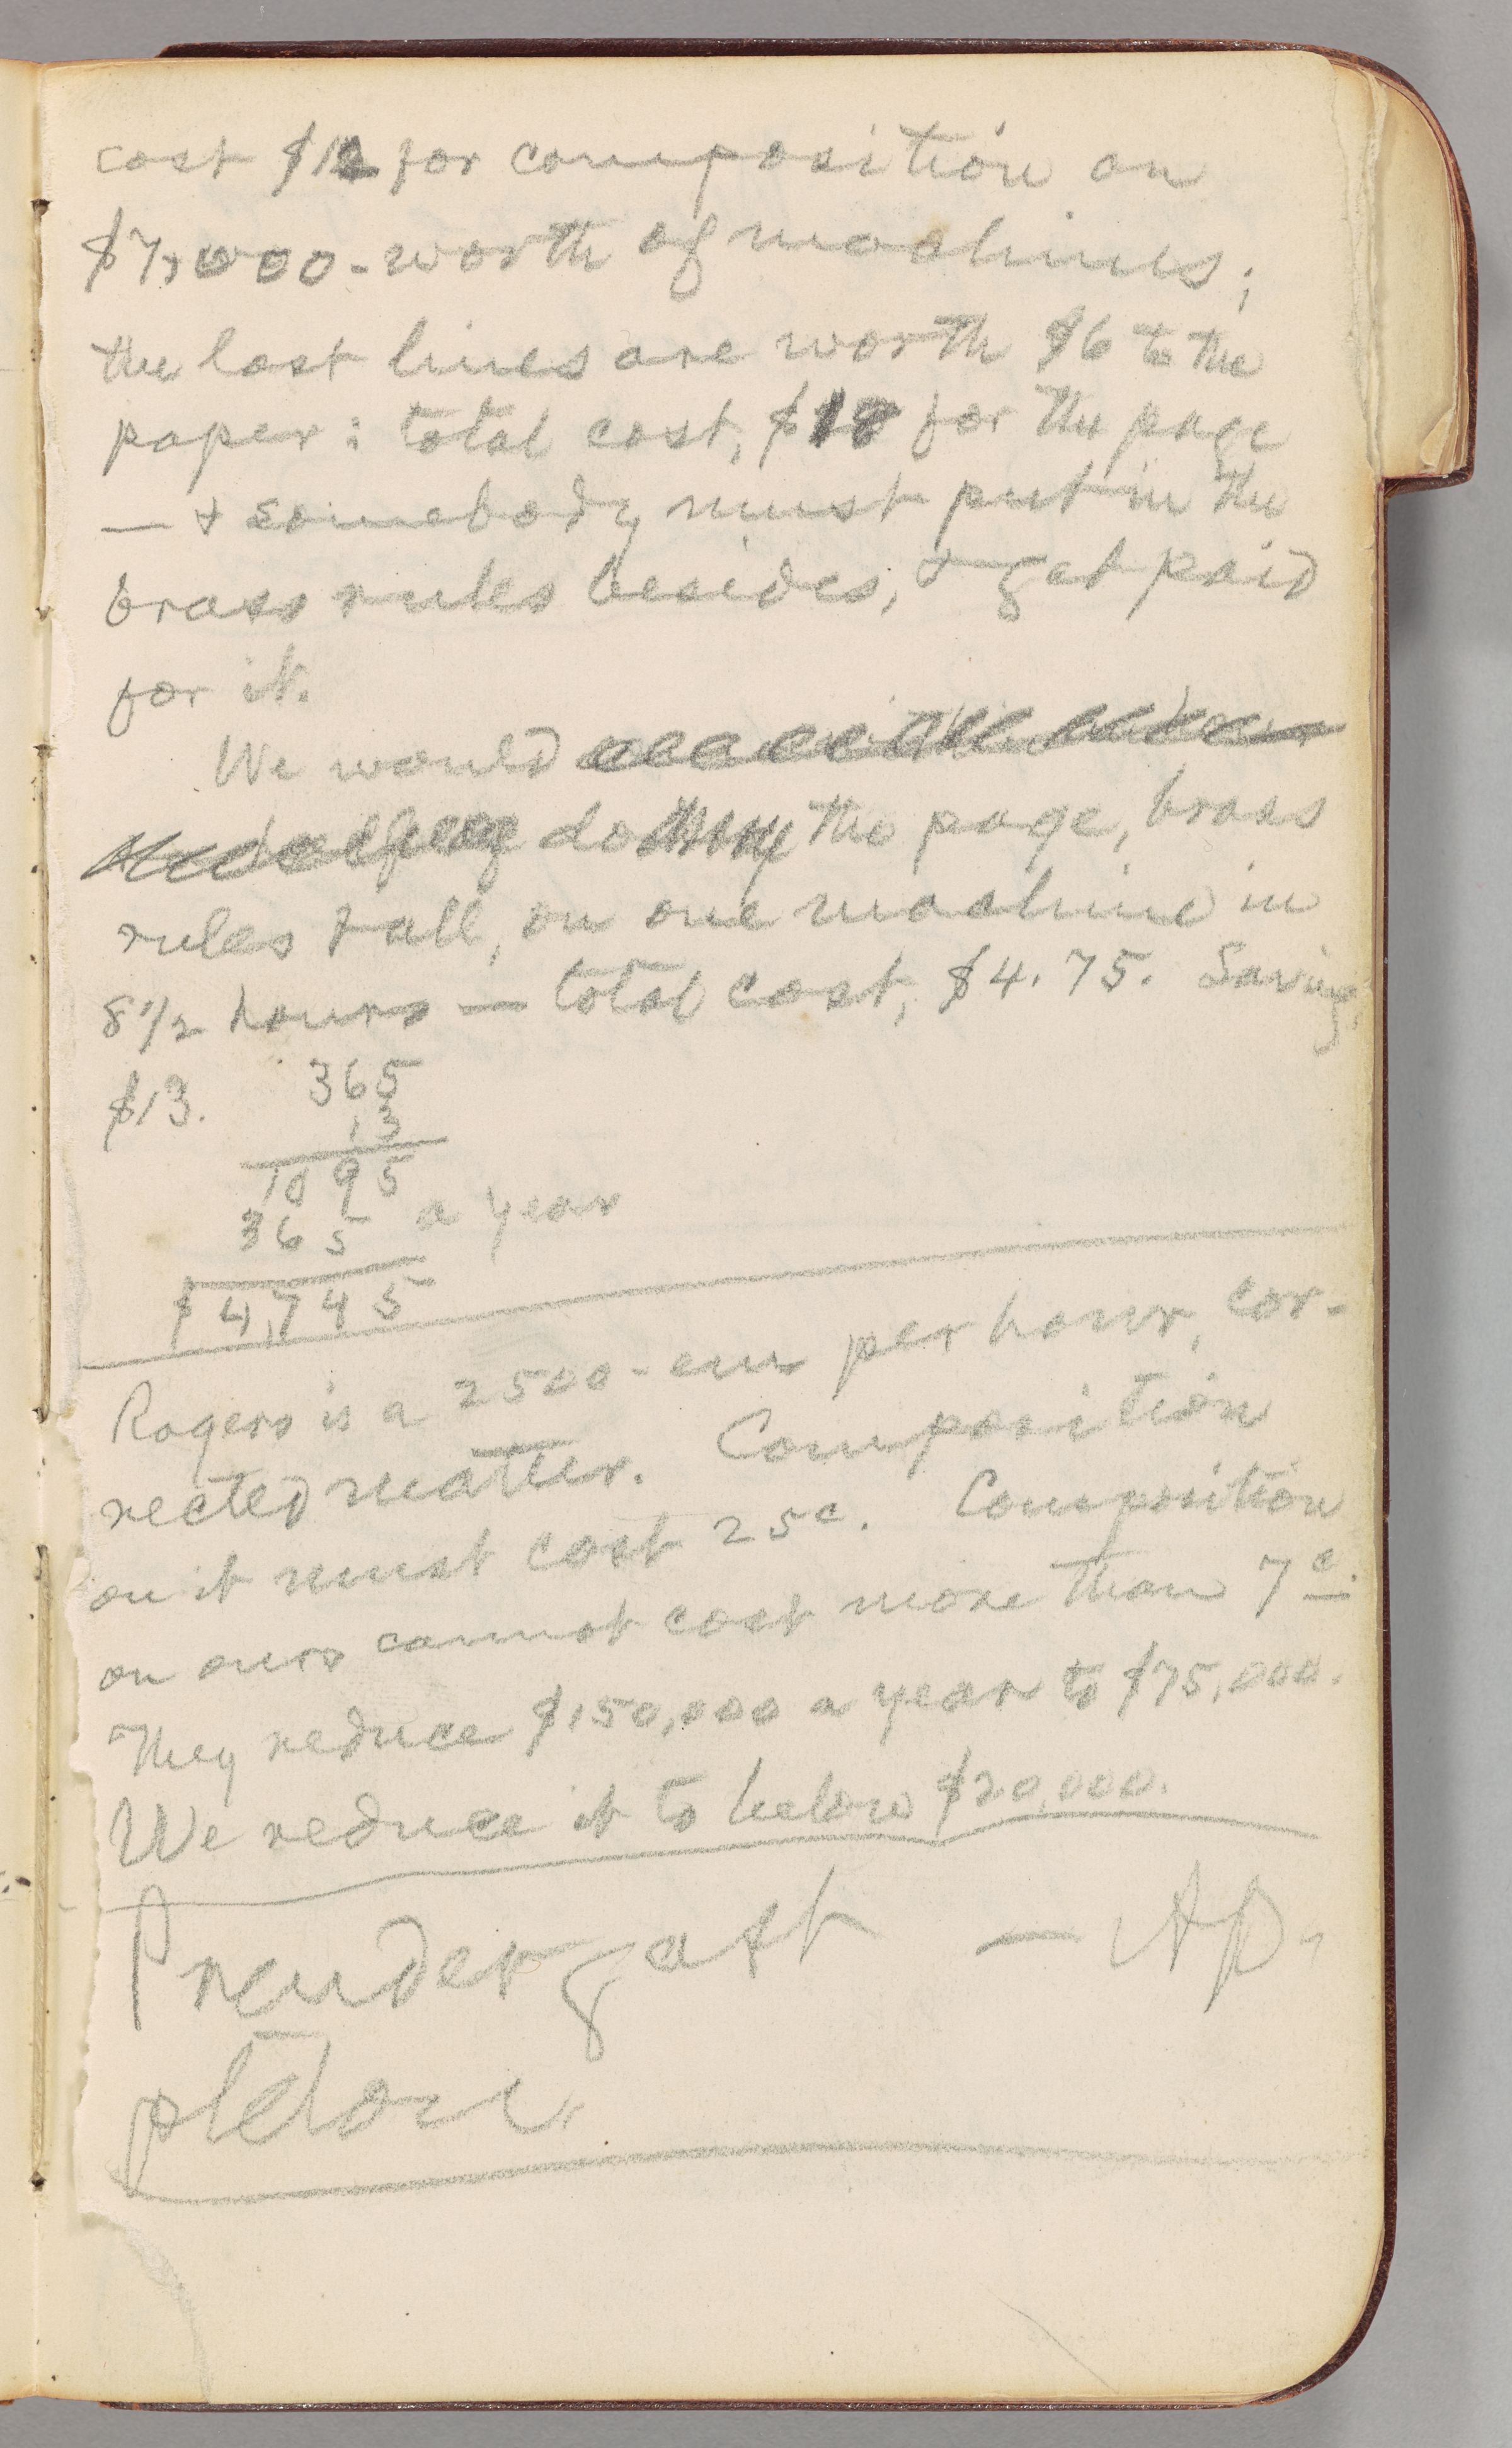 cost $12 for composition on
$7,000-worth of machines;
the lost lines are worth $6 to the
paper: total cost, $18 for the page
— & somebody must put in the
brass rules besides, & get paid
for it.
We would
do the page, brass
rules & all, on one machine in
8 1/2 hours — total cost, $4.75. Saving,
$13. 365
13
1095
365 a year
$4,745
Rogers is a 2500-em per hour, cor-
rected matter. Composition
on it must cost 25c. Composition
on ours cannot cost more than 7c.
They reduce $150,000 a year to $75,000.
We reduce it to below $20,000.
Prendergast — Ap.